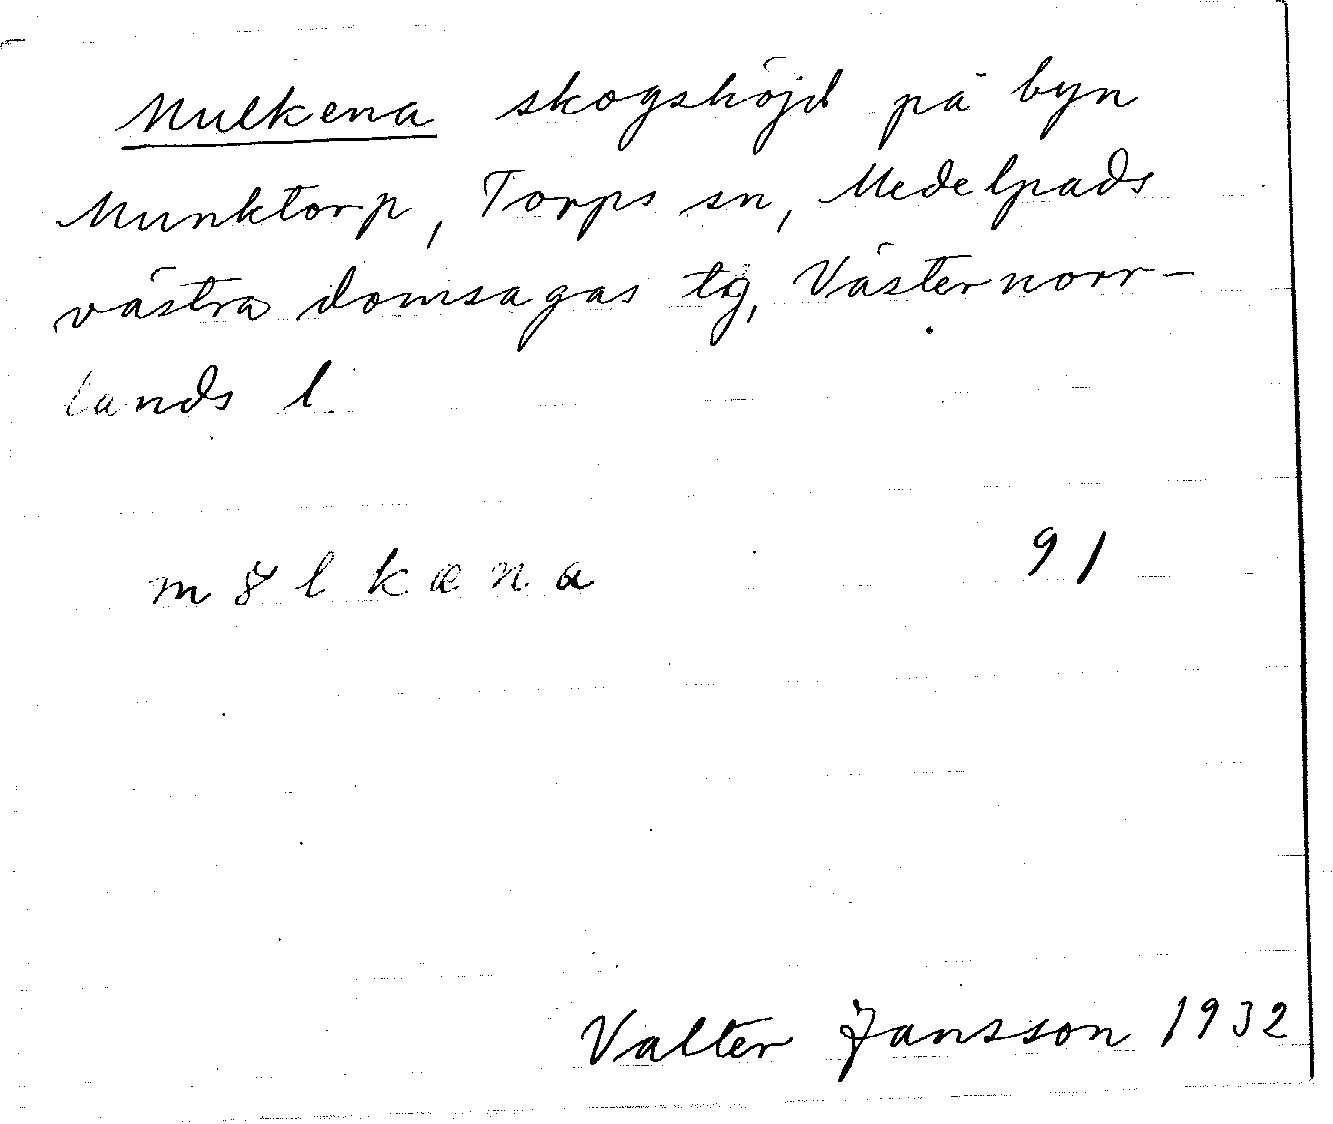 Mulkena skogshöjd på byn
Munktorp, Torps sn, Medelpads
västra domsagas tg, Västernorr-
lands l
91
Valter Jansson 1932